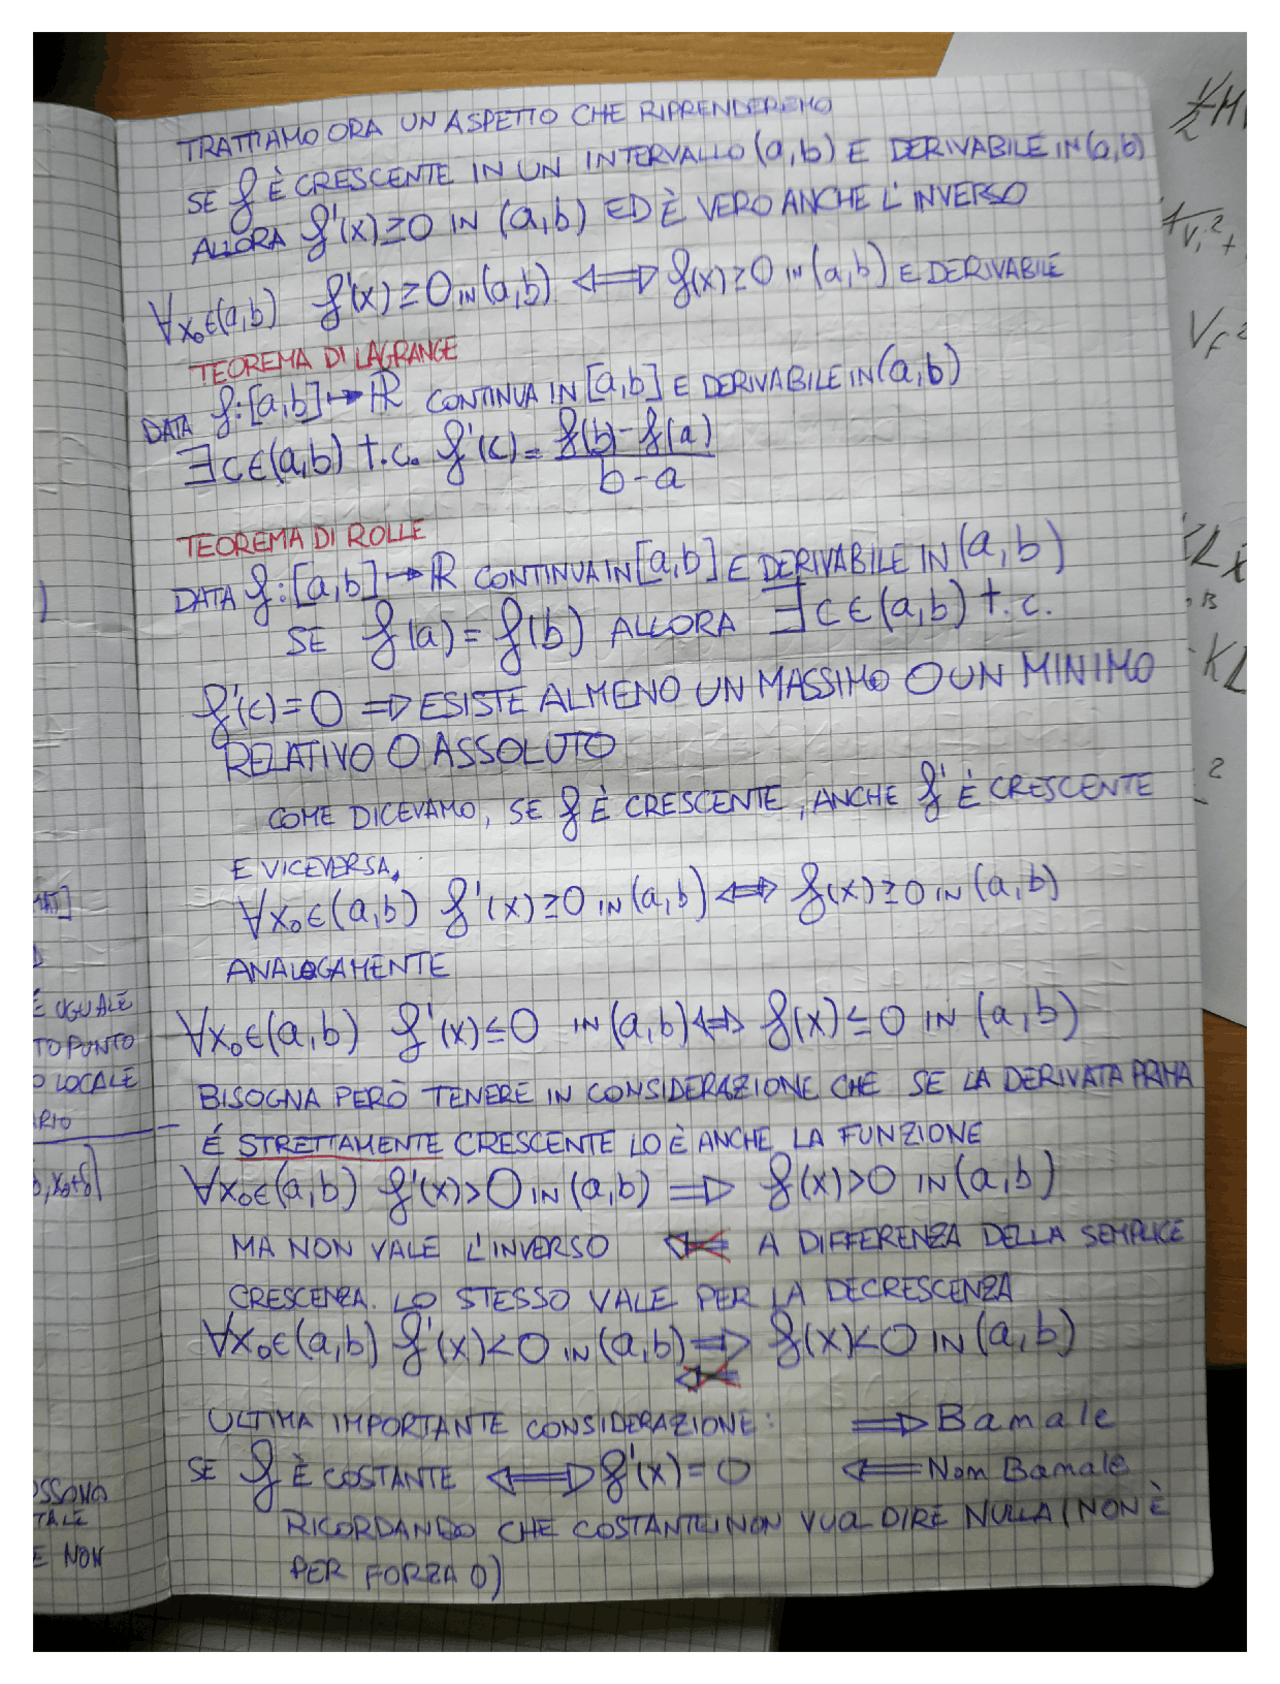 TRATTIAMO ORA UN ASPETTO CHE RIPRENDEREMO
SE f È CRESCENTE IN UN INTERVALLO (a,b) E DERIVABILE IN (a,b)
ALLORA f'(x)≥0 IN (a,b) ED È VERO ANCHE L'INVERSO
∀x₀∈(a,b) f'(x)≥0 IN (a,b) ⟺ f(x)≥0 IN (a,b) E DERIVABILE
TEOREMA DI LAGRANGE
DATA f:[a,b]↦ℝ CONTINUA IN [a,b] E DERIVABILE IN (a,b)
∃c∈(a,b) t.c. f'(c)= f(b)-f(a)
b-a
TEOREMA DI ROLLE
DATA f:[a,b]↦ℝ CONTINUA IN [a,b] E DERIVABILE IN (a,b)
SE f(a)=f(b) ALLORA ∃c∈(a,b) t.c.
f'(c)=0 ⇒ ESISTE ALMENO UN MASSIMO O UN MINIMO
RELATIVO O ASSOLUTO
COME DICEVAMO, SE f È CRESCENTE, ANCHE f' È CRESCENTE
E VICEVERSA.
∀x₀∈(a,b) f'(x)≥0 IN (a,b) ⟺ f(x)≥0 IN (a,b)
ANALOGAMENTE
∀x₀∈(a,b) f'(x)≤0 IN (a,b) ⟺ f(x)≤0 IN (a,b)
BISOGNA PERÒ TENERE IN CONSIDERAZIONE CHE SE LA DERIVATA PRIMA
É STRETTAMENTE CRESCENTE LO È ANCHE LA FUNZIONE
∀x₀∈(a,b) f'(x)>0 IN (a,b) ⇒ f(x)>0 IN (a,b)
MA NON VALE L'INVERSO ⇍ A DIFFERENZA DELLA SEMPLICE
CRESCENZA. LO STESSO VALE PER LA DECRESCENZA
∀x₀∈(a,b) f'(x)<0 IN (a,b) ⇒ f(x)<0 IN (a,b)
⇍
ULTIMA IMPORTANTE CONSIDERAZIONE: ⇒ Banale
SE f È COSTANTE ⟺ f'(x)=0 ⇐ Non Banale
RICORDANDO CHE COSTANTE NON VUOL DIRE NULLA (NON È
PER FORZA 0)
É UGUALE
TO PUNTO
O LOCALE
RIO
OSSONO
TALE
E NON
½M
KL
2